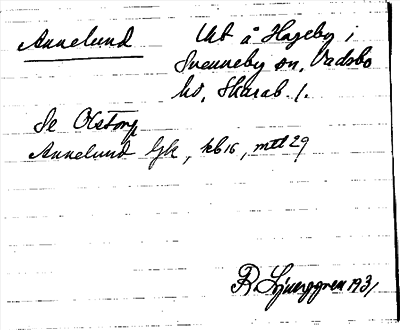 Annelund
Utt å Hageby i
Svenneby sn, Vadsbo
hd, Skarab l.
Se Olstorp
Annelund Gk, kb 16, mtl 29
R Ljunggren 1931